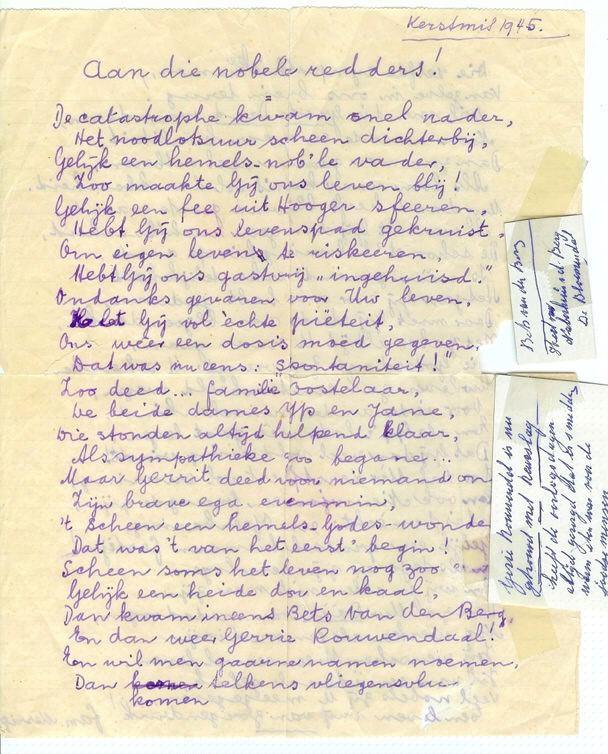 Kerstmis 1945.
Aan die nobele redders!
De catastrophe kwam snel nader,
Het noodlotsuur scheen dichterbij,
Gelijk een hemels-nob'le vader,
Zoo maakte Gij ons leven blij!
Gelijk een fee uit Hooger sfeeren,
Hebt Gij ons levenspad gekruist,
Om eigen leven te riskeeren,
Hebt Gij ons gastvrij „ingehuisd."
Ondanks gevaren voor Uw leven,
Hebt Gij vol echte piëteit,
Ons weer een dosis moed gegeven,
Dat was nu eens: "Spontaniteit!"
Zoo deed... familie Oostelaar,
De beide dames Yp en Jane,
Die stonden altijd helpend klaar,
Als sympathieke
Maar Gerrit deed voor niemand on
Zijn brave ega evenmin,
't Scheen een hemels-Godes-wonde
Dat was 't van het eerst' begin!
Scheen soms het leven nog zoo
Gelijk een heide dor en kaal,
Dan kwam ineens Bets van den Berg,
En dan weer Gerrie Rouwendaal!
En wil men gaarne namen noemen,
Dan komen telkens vliegensvlu
komen
Bets van den Berg
Ziekenhuis d. Berg
Gerrie Rouwendal is nu
getrouwd met
heeft de oorlogsdagen
altijd gezegd dat